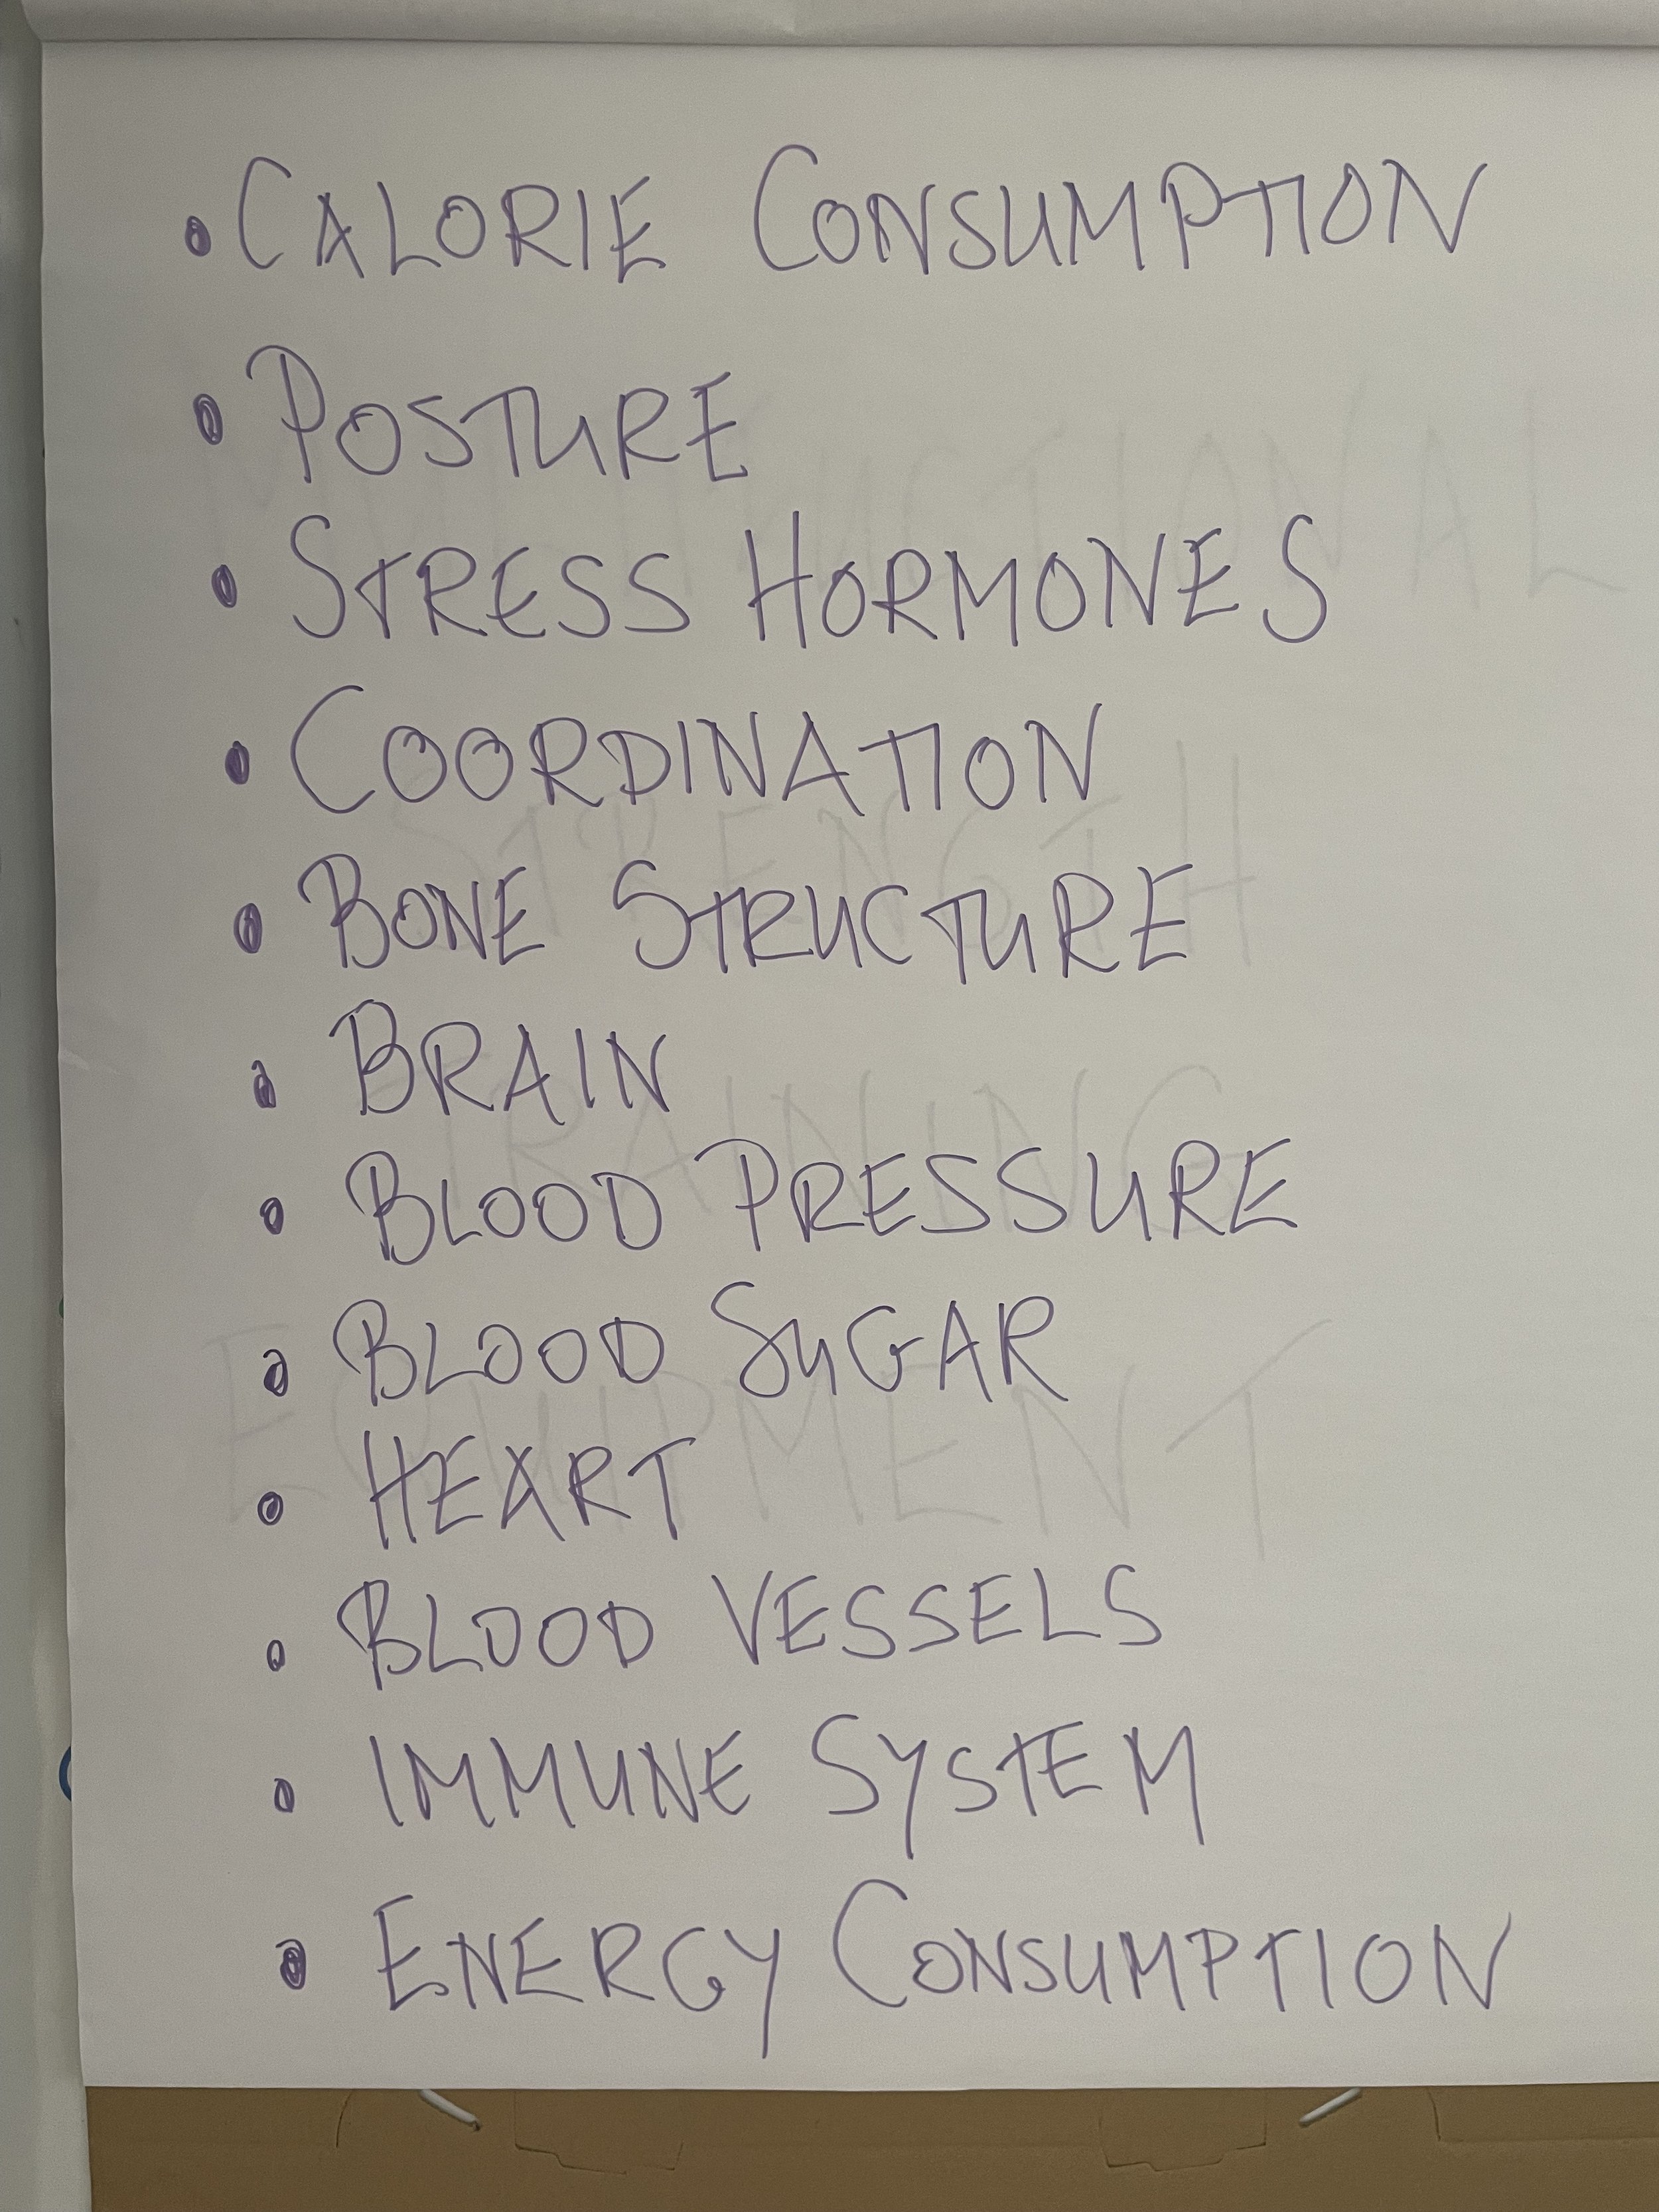 • CALORIE CONSUMPTION
• POSTURE
• STRESS HORMONES
• COORDINATION
• BONE STRUCTURE
• BRAIN
• BLOOD PRESSURE
• BLOOD SUGAR
• HEART
• BLOOD VESSELS
• IMMUNE SYSTEM
• ENERGY CONSUMPTION
STRENGTH
TRAINING
EQUIPMENT